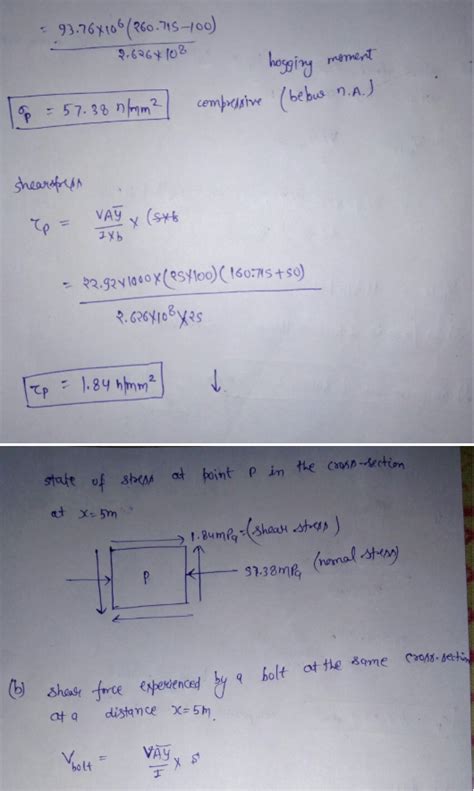 = 93.76×10⁶ (260.715-100)
2.626×10⁸
hogging moment
σp = 57.38 n/mm² compressive (below n.A.)
shearstress
τp = VAȳ × (
I×b
= 22.92×1000×(25×100)(160.715+50)
2.626×10⁸×25
τp = 1.84 n/mm² ↓
state of stress at point P in the cross-section
at x=5m
1.84mPa=(shear stress)
P
57.38mPa (normal stress)
(b) shear force experienced by a bolt at the same cross-section
at a distance x=5m.
Vbolt = VAȳ × s
I